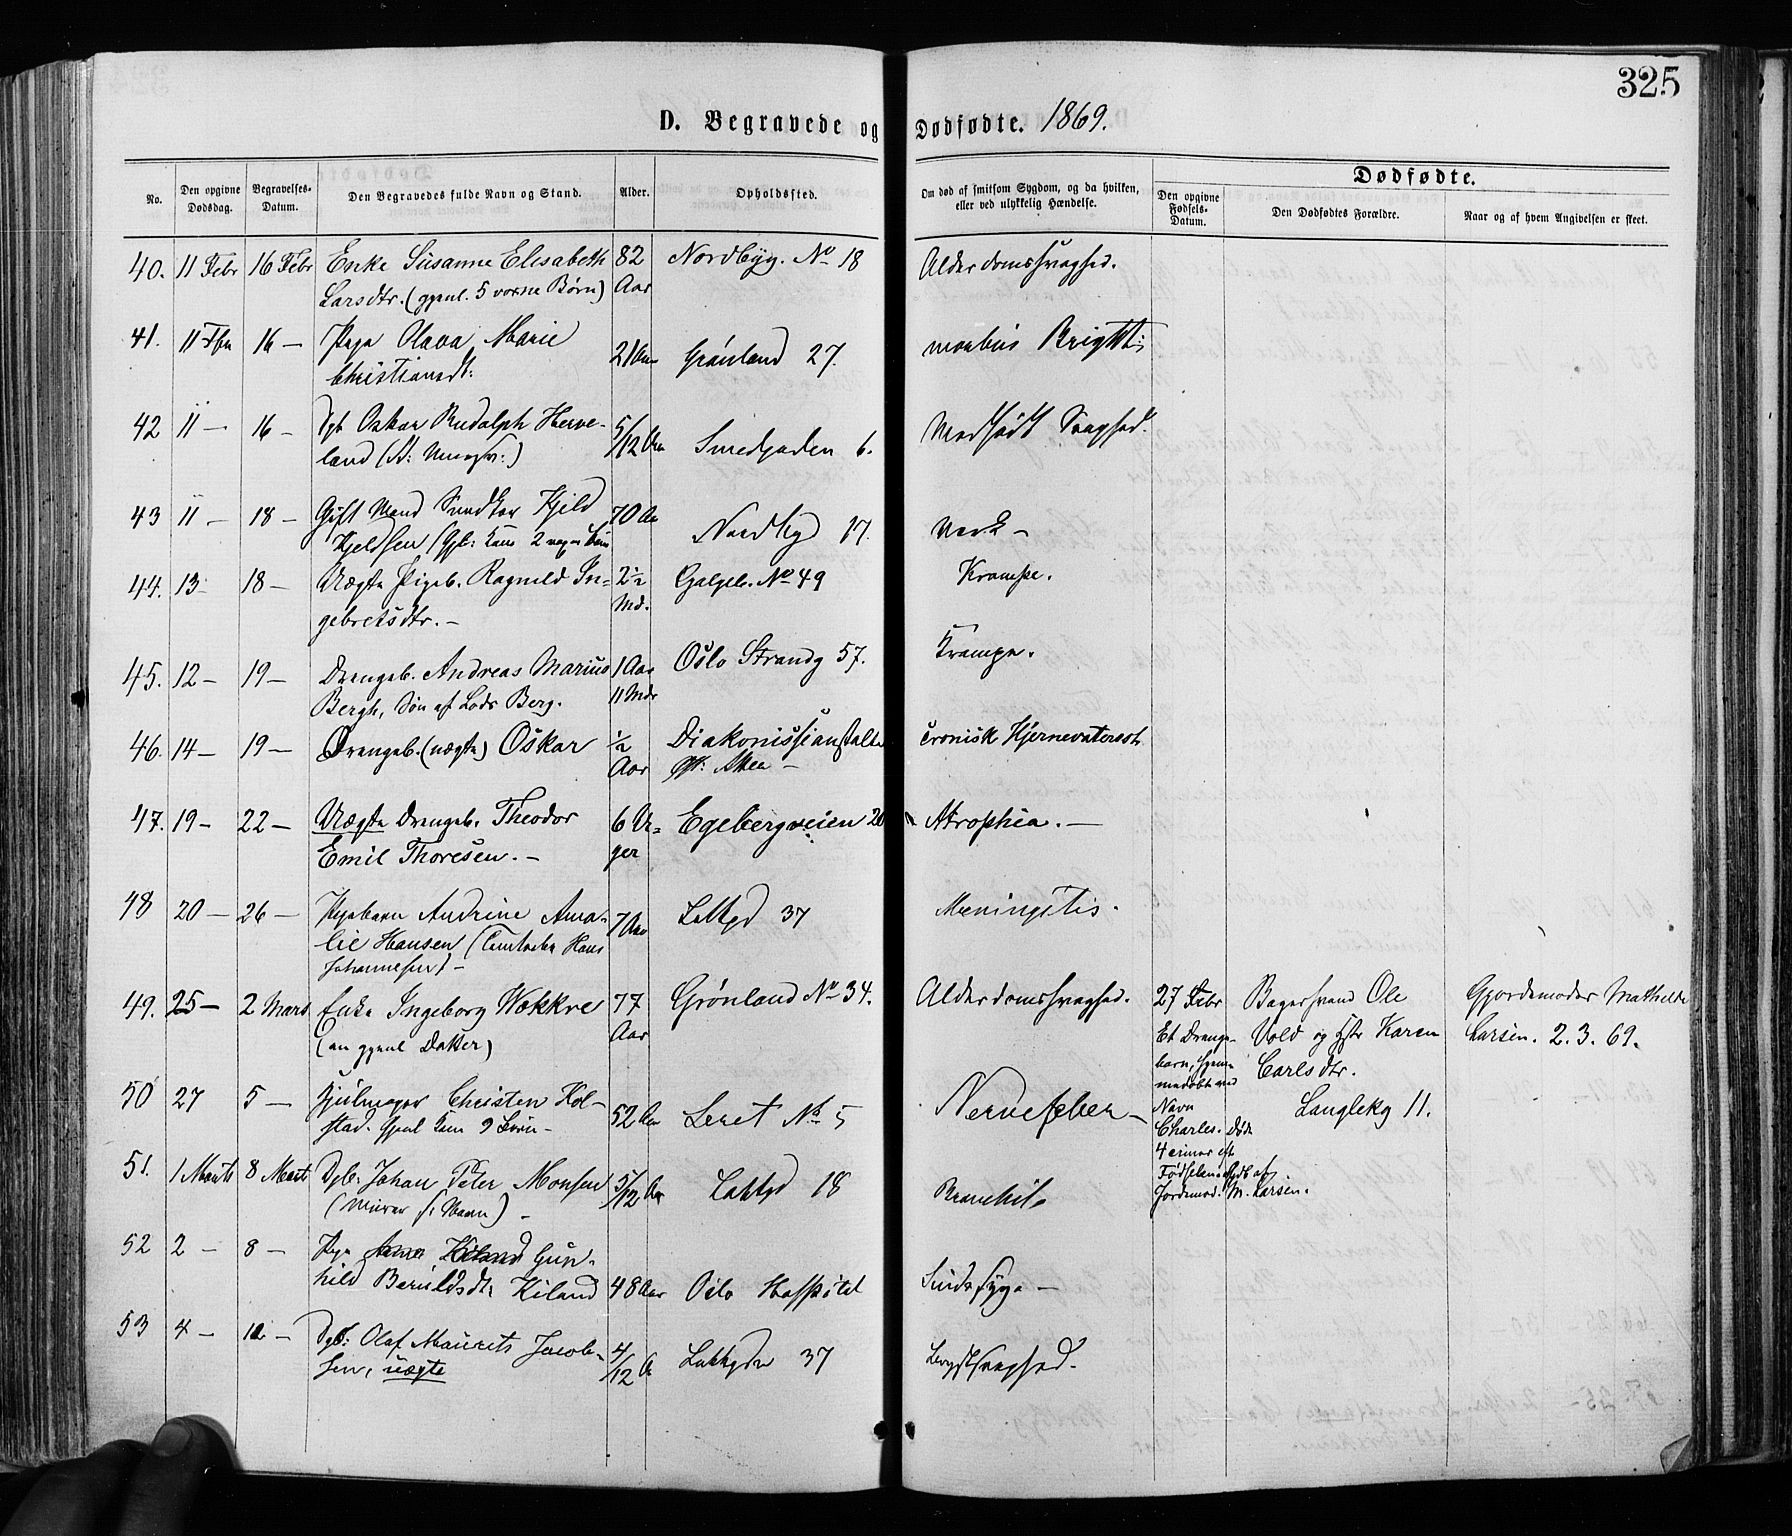 325
D. Begravede og Dødfødte. 1869.
No.
Den opgivne Dødsdag.
Begravelses-Datum.
Den Begravedes fulde Navn og Stand.
Alder.
Opholdssted.
Om død af smitsom Sygdom, og da hvilken, eller ved ulykkelig Hændelse.
Dødfødte.
Den opgivne Fødsels-Datum.
Den Dødfødtes Forældre.
Naar og af hvem Angivelsen er skeet.
40. 11 Febr 16 Febr Enke Susanne Elisabeth 82 Nordbyg. No 18 Alderdomssvaghed.
Larsdtr. (gjenl. 5 vorne Børn) Aar
41. 11 16 — Olava Marie
Christiansdt: 21 Aar Grønland 27. morbus Brigtti
42 11 — 16 — Oskar Rudolph Herve- 5/12 Medfødt Svaghed.
land Smedgaden 6.
43 11 — 18 — Gift Mand Kjeld 70 Aar
Kjeldsen 2 Børn Nordbyg 17. Værk —
44. 13 — 18 — Uægte Pigeb. Ragnild In- 2½ Galgeb. No 49 Krampe.
gebretsdtr. — Md.
45. 12 — 19 — Drengeb. Andreas Marius 1 Aar Oslo Strandg 57. Krampe.
Bergh, Søn af Lods Berg. 11 Mdr
46. 14 — 19 — Drengeb. (uægte) Oskar ½ Diakonissianstalten cronisk Hjernevatersot
Aar
47. 19 — 22 — Uægte Drengeb. Theodor 6 U- Egebergveien 20 Atrophia. —
Emil Thoresen. — ger
48 20 — 26 — Pigebarn Andrine Ama- 7 Aar 37 Meningitis.
lie Hansen (Hans
Johannesen) —
49. 25 — 2 Mars Enke Ingeborg Wækkre 77 Grønland No 34. Alderdomssvaghed. 27 Febr Bagersvend Ole Gjordemoder Mathilde
(en gjenl Datter) Aar Et Drenge- Vold og Hstr Karen Larsen. 2. 3. 69.
barn, hjemmedøbt med Carlsdtr.
50 27 5 — Hjulmager Christen Kol- Nervefeber — Navn Langlekg 11.
stad. gjenl Kone 9 Børn — 52 Aar Leret No 5 Charles. Døde
4 timer eft
51. 1 Marts 8 Marts Dgb: Johan Peter Monsen 5/12 18 Bronchit Fødselen. Hjdb af
(Murer) — Jordemod. M. Larsen.
52 2 — 8 — Gun-
hild Kiland 48 Aar Oslo Hospital Sindssyge —
53 4 — Olaf Maurits Jacob- 4/12 37 Brystsvaghed.
sen, uægte